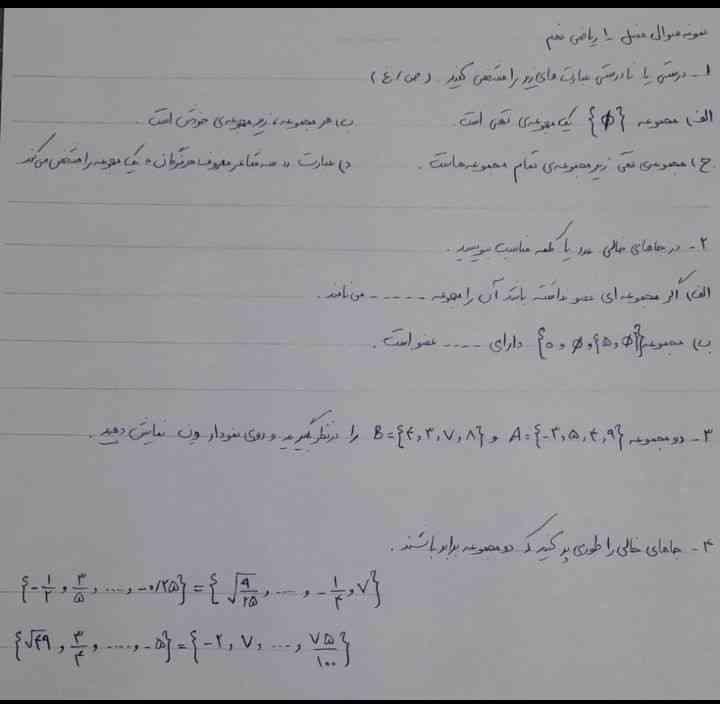 نمونه سوال فصل ۱ ریاضی نهم
۱- درستی یا نادرستی عبارت های زیر را مشخص کنید. (ص/غ)
الف) مجموعه {∅} یک مجموعه‌ی تهی است. ب) هر مجموعه، زیر مجموعه‌ی خودش است.
ج) مجموعه‌ی تهی زیر مجموعه‌ی تمام مجموعه هاست. د) عبارت « سه شاعر معروف قرآن » یک مجموعه را مشخص می‌کند
۲- در جاهای خالی عدد یا کلمه مناسب بنویسید.
الف) اگر مجموعه ای عضو نداشته باشد آن را مجموعه ----- می‌نامند.
ب) مجموعه {۵ , ∅ , {۵ , ∅}} دارای ---- عضو است.
۳- دو مجموعه A={-۳,۵,۴,۹} و B={۴,۳,۷,۸} را در نظر بگیرید و روی نمودار ون نمایش دهید.
۴- جاهای خالی را طوری پر کنید که دو مجموعه برابر باشند.
{-۱/۲ , ۳/۵ , ... , -۰/۲۵} = {√(۹/۲۵) , ... , -۱/۴ , ۷}
{√۴۹ , ۳/۴ , .... , -۵} = {-۲ , ۷ , ... , ۷۵/۱۰۰}